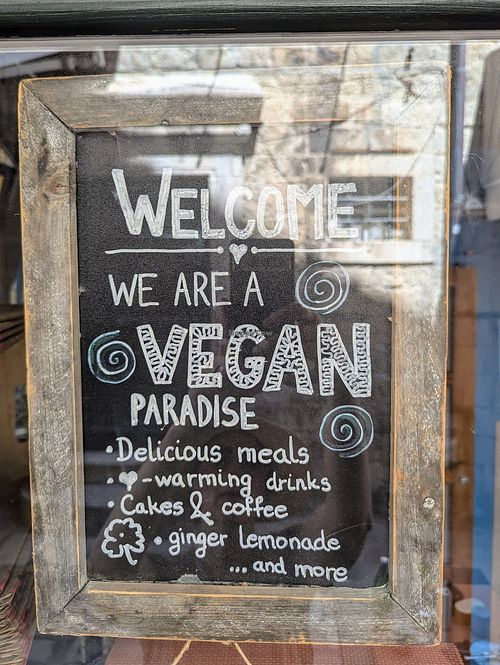 WELCOME
WE ARE A
VEGAN
PARADISE
• Delicious meals
• ♥-warming drinks
• Cakes & coffee
• ginger lemonade
... and more